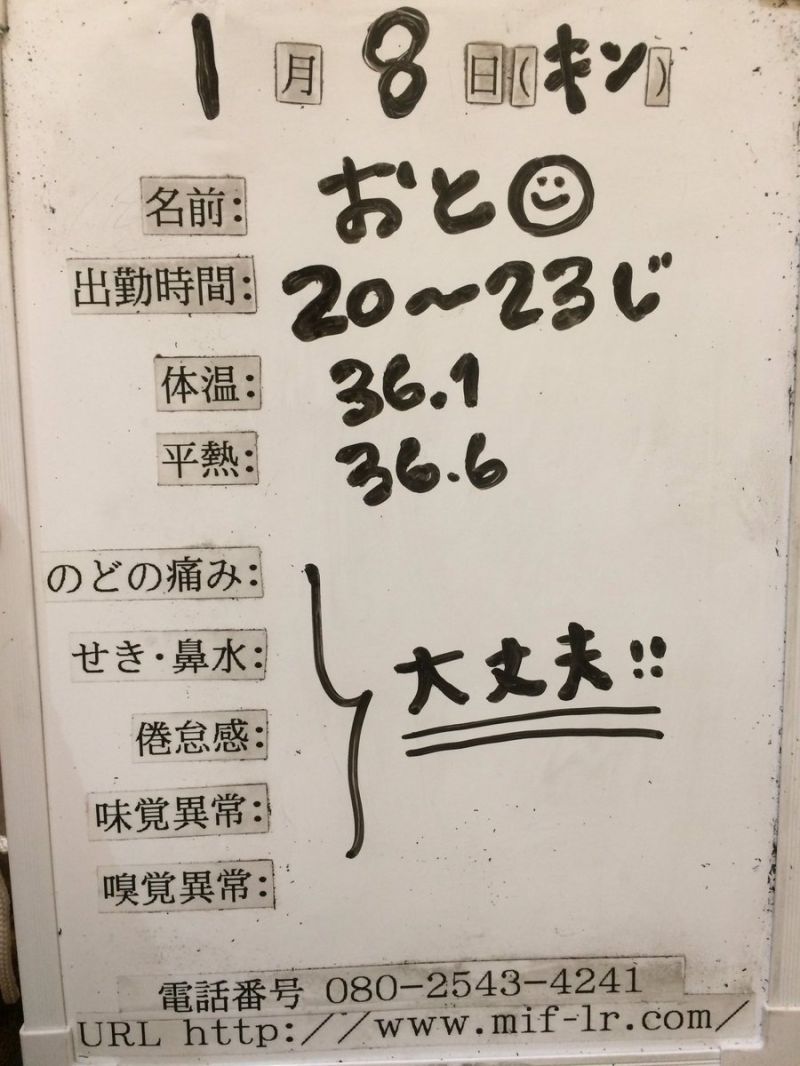 1月8日(キン)
名前: おと
出勤時間: 20〜23じ
体温: 36.1
平熱: 36.6
のどの痛み:
せき・鼻水:
大丈夫!!
倦怠感:
味覚異常:
嗅覚異常:
電話番号 080-2543-4241
URL http://www.mif-lr.com/